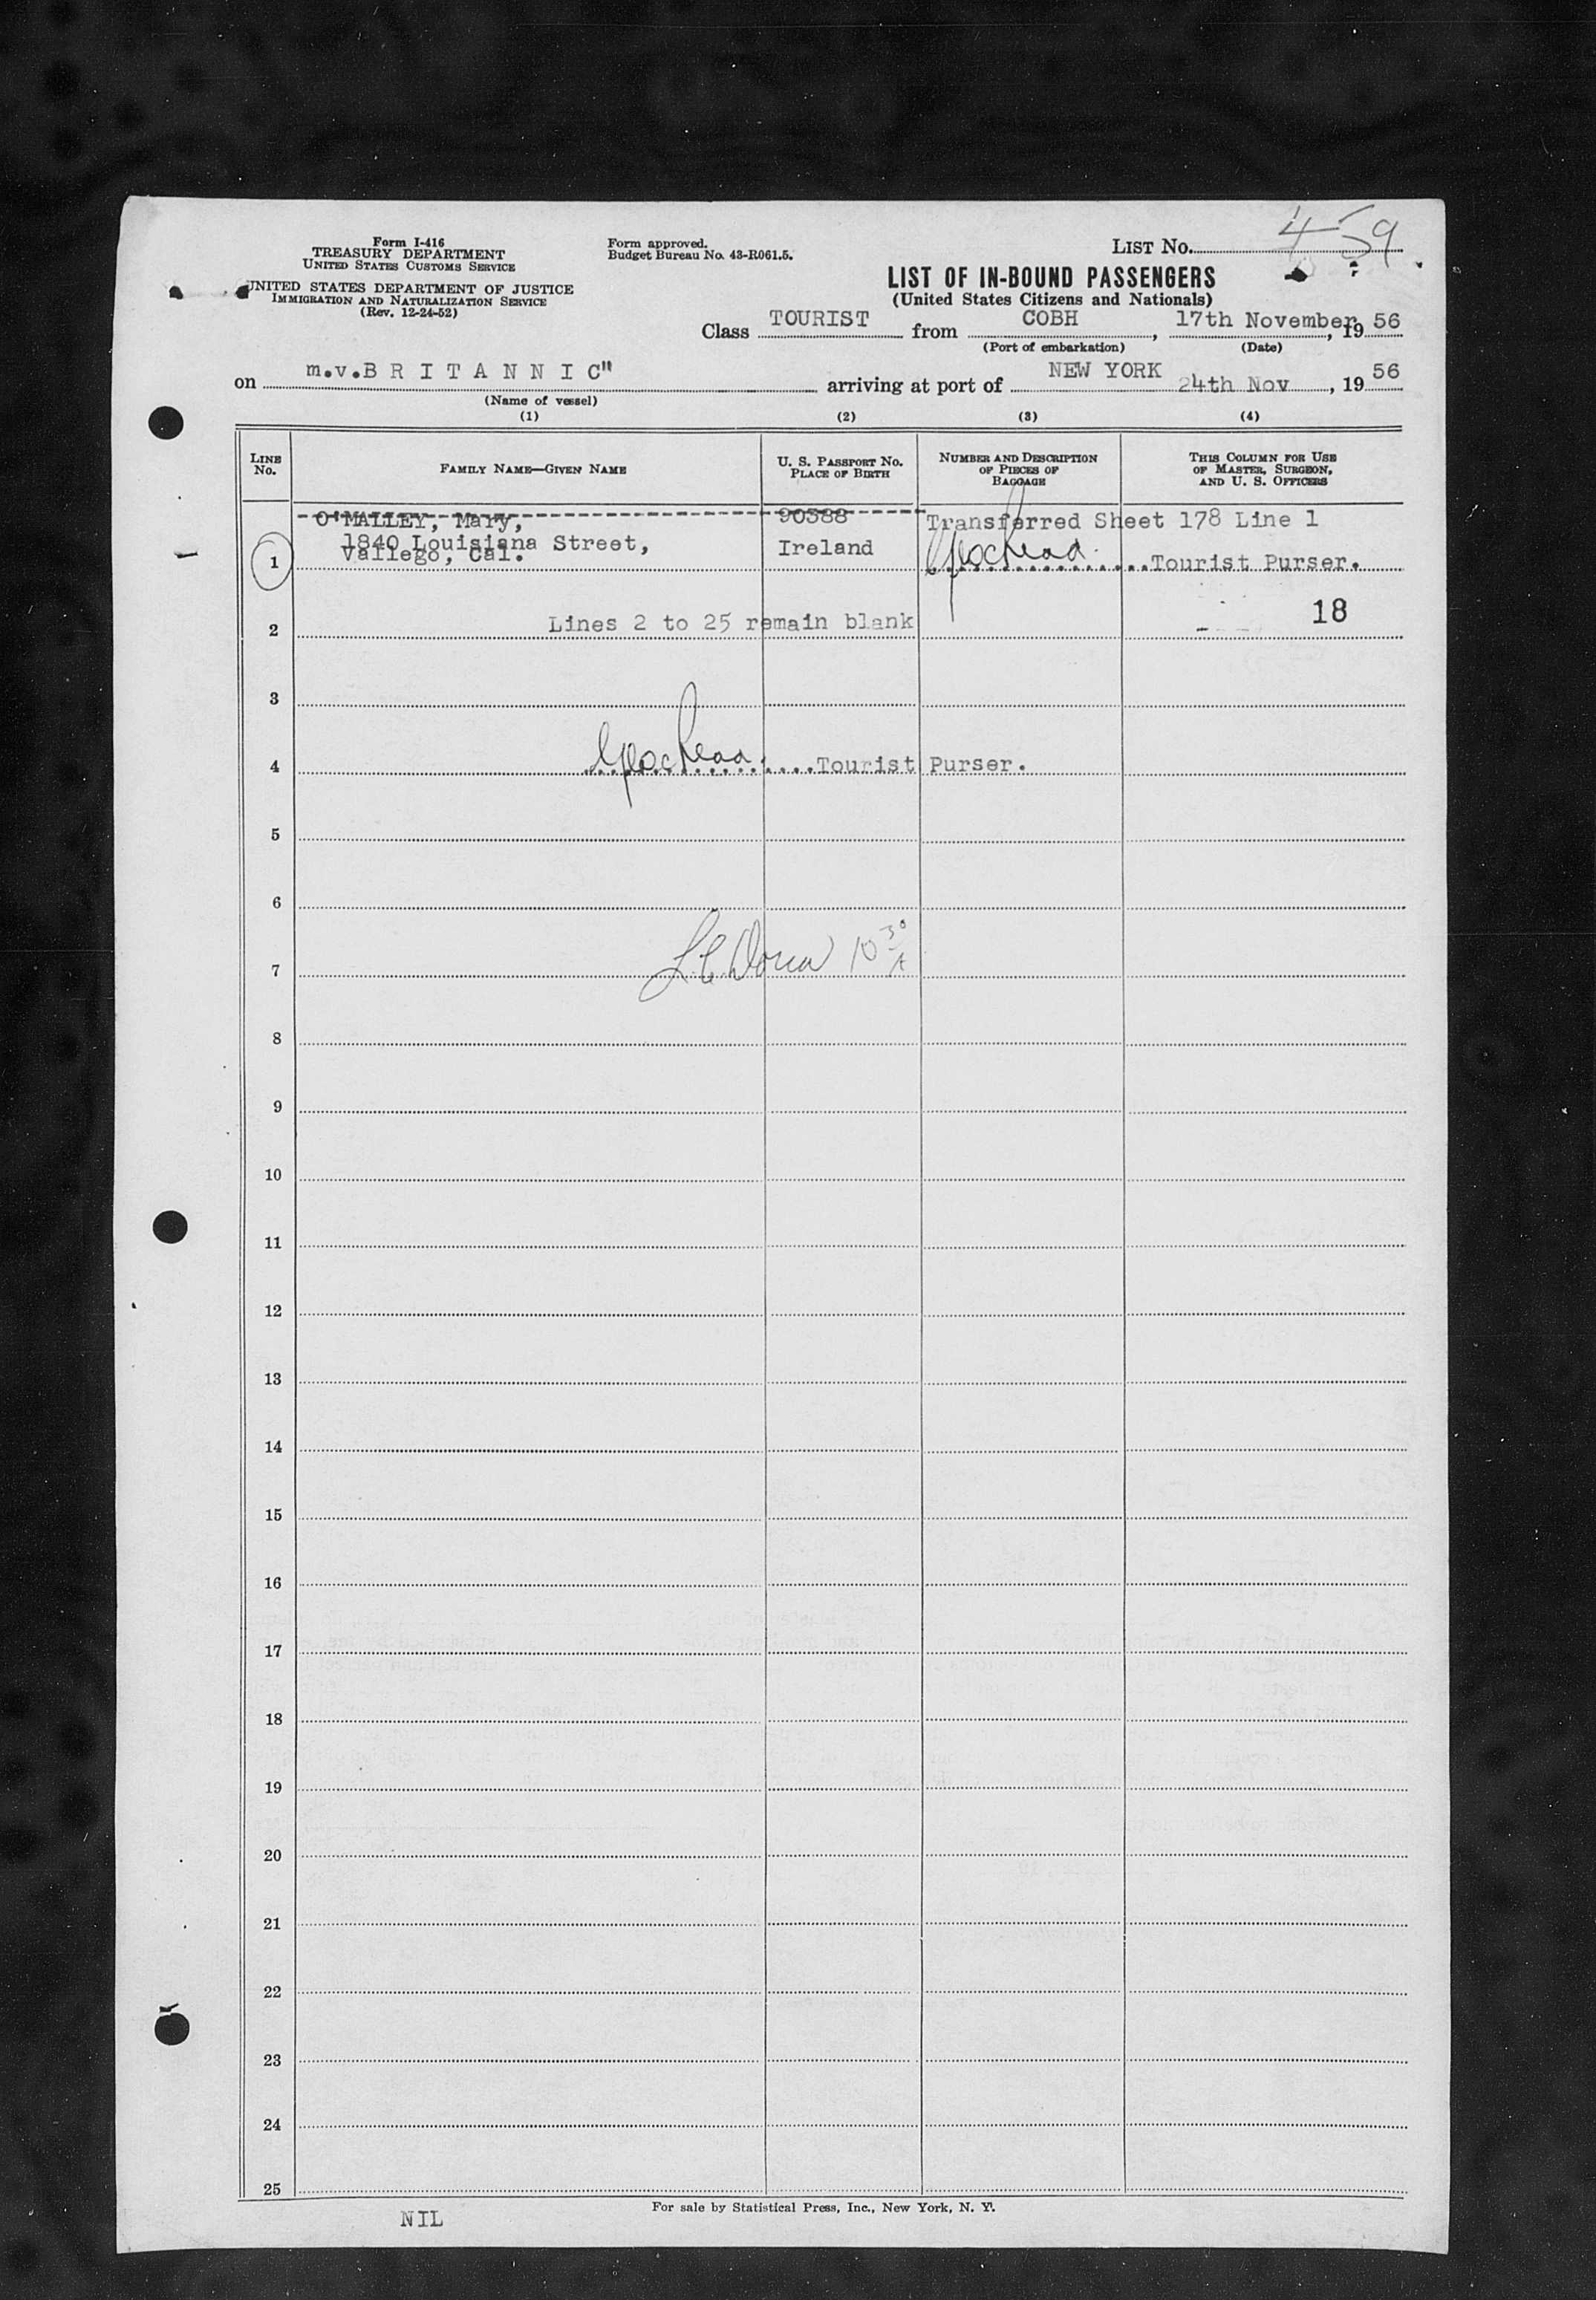 Form I-416
TREASURY DEPARTMENT
UNITED STATES CUSTOMS SERVICE
UNITED STATES DEPARTMENT OF JUSTICE
IMMIGRATION AND NATURALIZATION SERVICE
(Rev. 12-24-52)
Form approved.
Budget Bureau No. 43-R061.5.
LIST No. 459
LIST OF IN-BOUND PASSENGERS
(United States Citizens and Nationals)
Class TOURIST from COBH, 17th November, 19 56
(Port of embarkation) (Date)
on m.v.B R I T A N N I C" arriving at port of NEW YORK 24th Nov, 19 56
(Name of vessel)
(1) (2) (3) (4)
LINE No. FAMILY NAME—GIVEN NAME U. S. PASSPORT No. PLACE OF BIRTH NUMBER AND DESCRIPTION OF PIECES OF BAGGAGE THIS COLUMN FOR USE OF MASTER, SURGEON, AND U. S. OFFICERS
O'MALLEY, Mary, 90388 Transferred Sheet 178 Line 1
1840 Louisiana Street, Ireland
Vallego, Cal.
1 Tourist Purser.
18
2 Lines 2 to 25 remain blank
3
4 Tourist Purser.
5
6
7 10 30 A
8
9
10
11
12
13
14
15
16
17
18
19
20
21
22
23
24
25
For sale by Statistical Press, Inc., New York, N. Y.
NIL